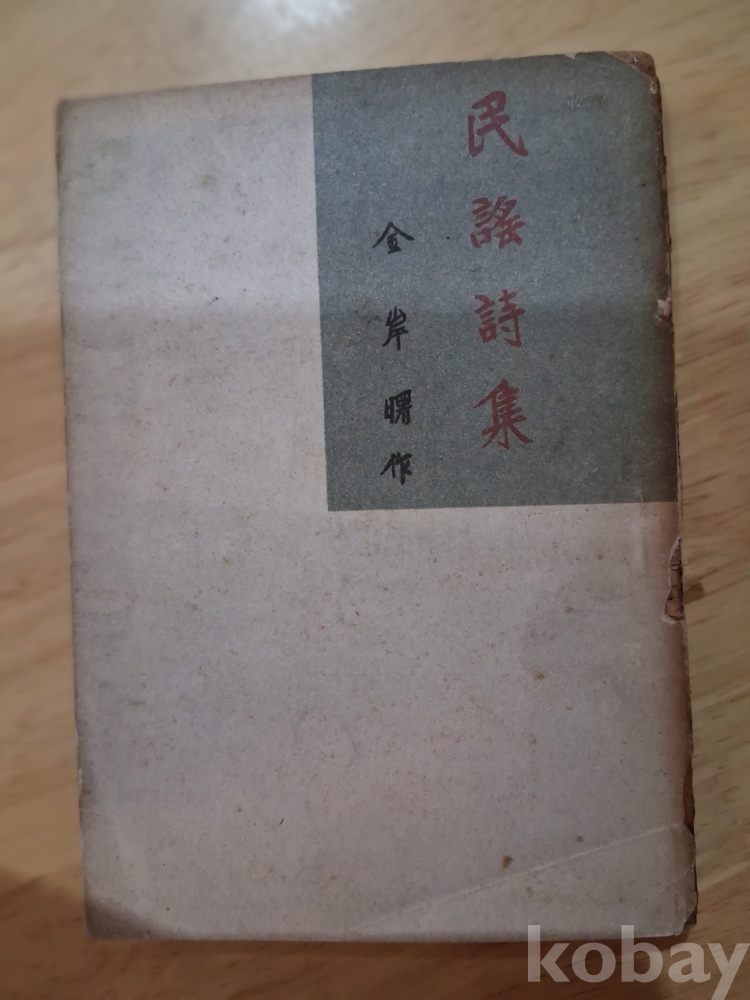 民謠詩集
金岸曙作
kobay